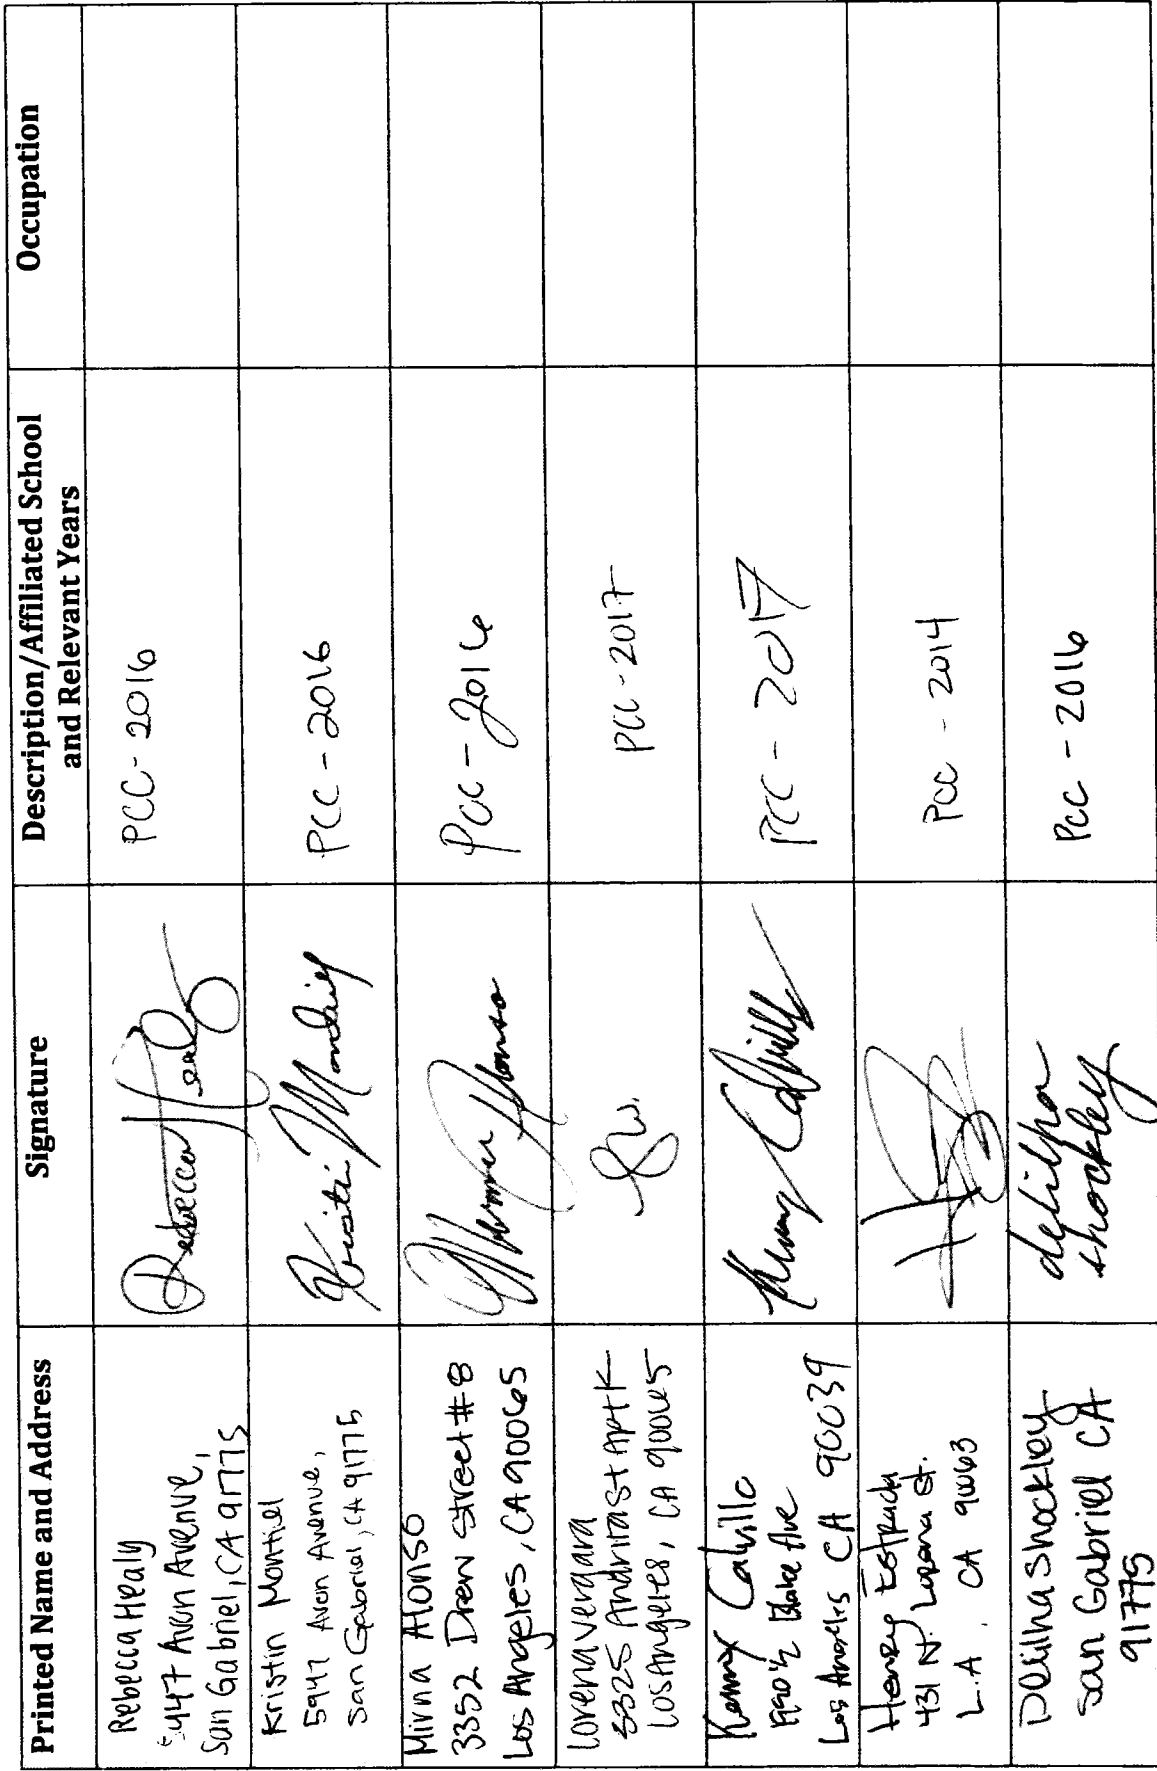 Printed Name and Address
Signature
Description/Affiliated School
and Relevant Years
Occupation
Rebecca Healy
5947 Avon Avenue,
San Gabriel, CA 91775
Rebecca Healy
PCC - 2016
Kristin Montiel
5947 Avon Avenue,
San Gabriel, CA 91775
Kristin
PCC - 2016
Mirna Alonso
3352 Drew Street #8
Los Angeles, CA 90065
Alonso
PCC - 2016
Lorena Vergara
3325 Andrita St Apt K
Los Angeles, CA 90065
PCC - 2017
Kenny Calvillo
Blake Ave
Los Angeles CA 90039
Kenny Calvillo
PCC - 2017
Henry Estrada
431 N. Lorena St.
L.A, CA 90063
PCC - 2014
Delilha Shockley
San Gabriel CA
91775
delilha
shockley
PCC - 2016